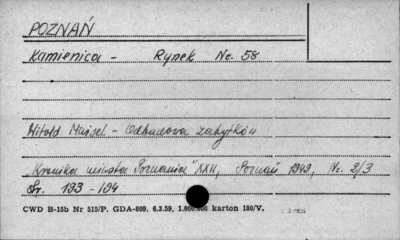 POZNAŃ
Kamienica - Rynek Nr. 58
Witold Maisel - Odbudowa zabytków
"Kronika miasta Poznania" XXII, Poznań 1949, Nr. 2/3
Str. 193-194
CWD B-15b Nr 515/P. GDA-809. 6.3.59. 1.000.000 karton 180/V.